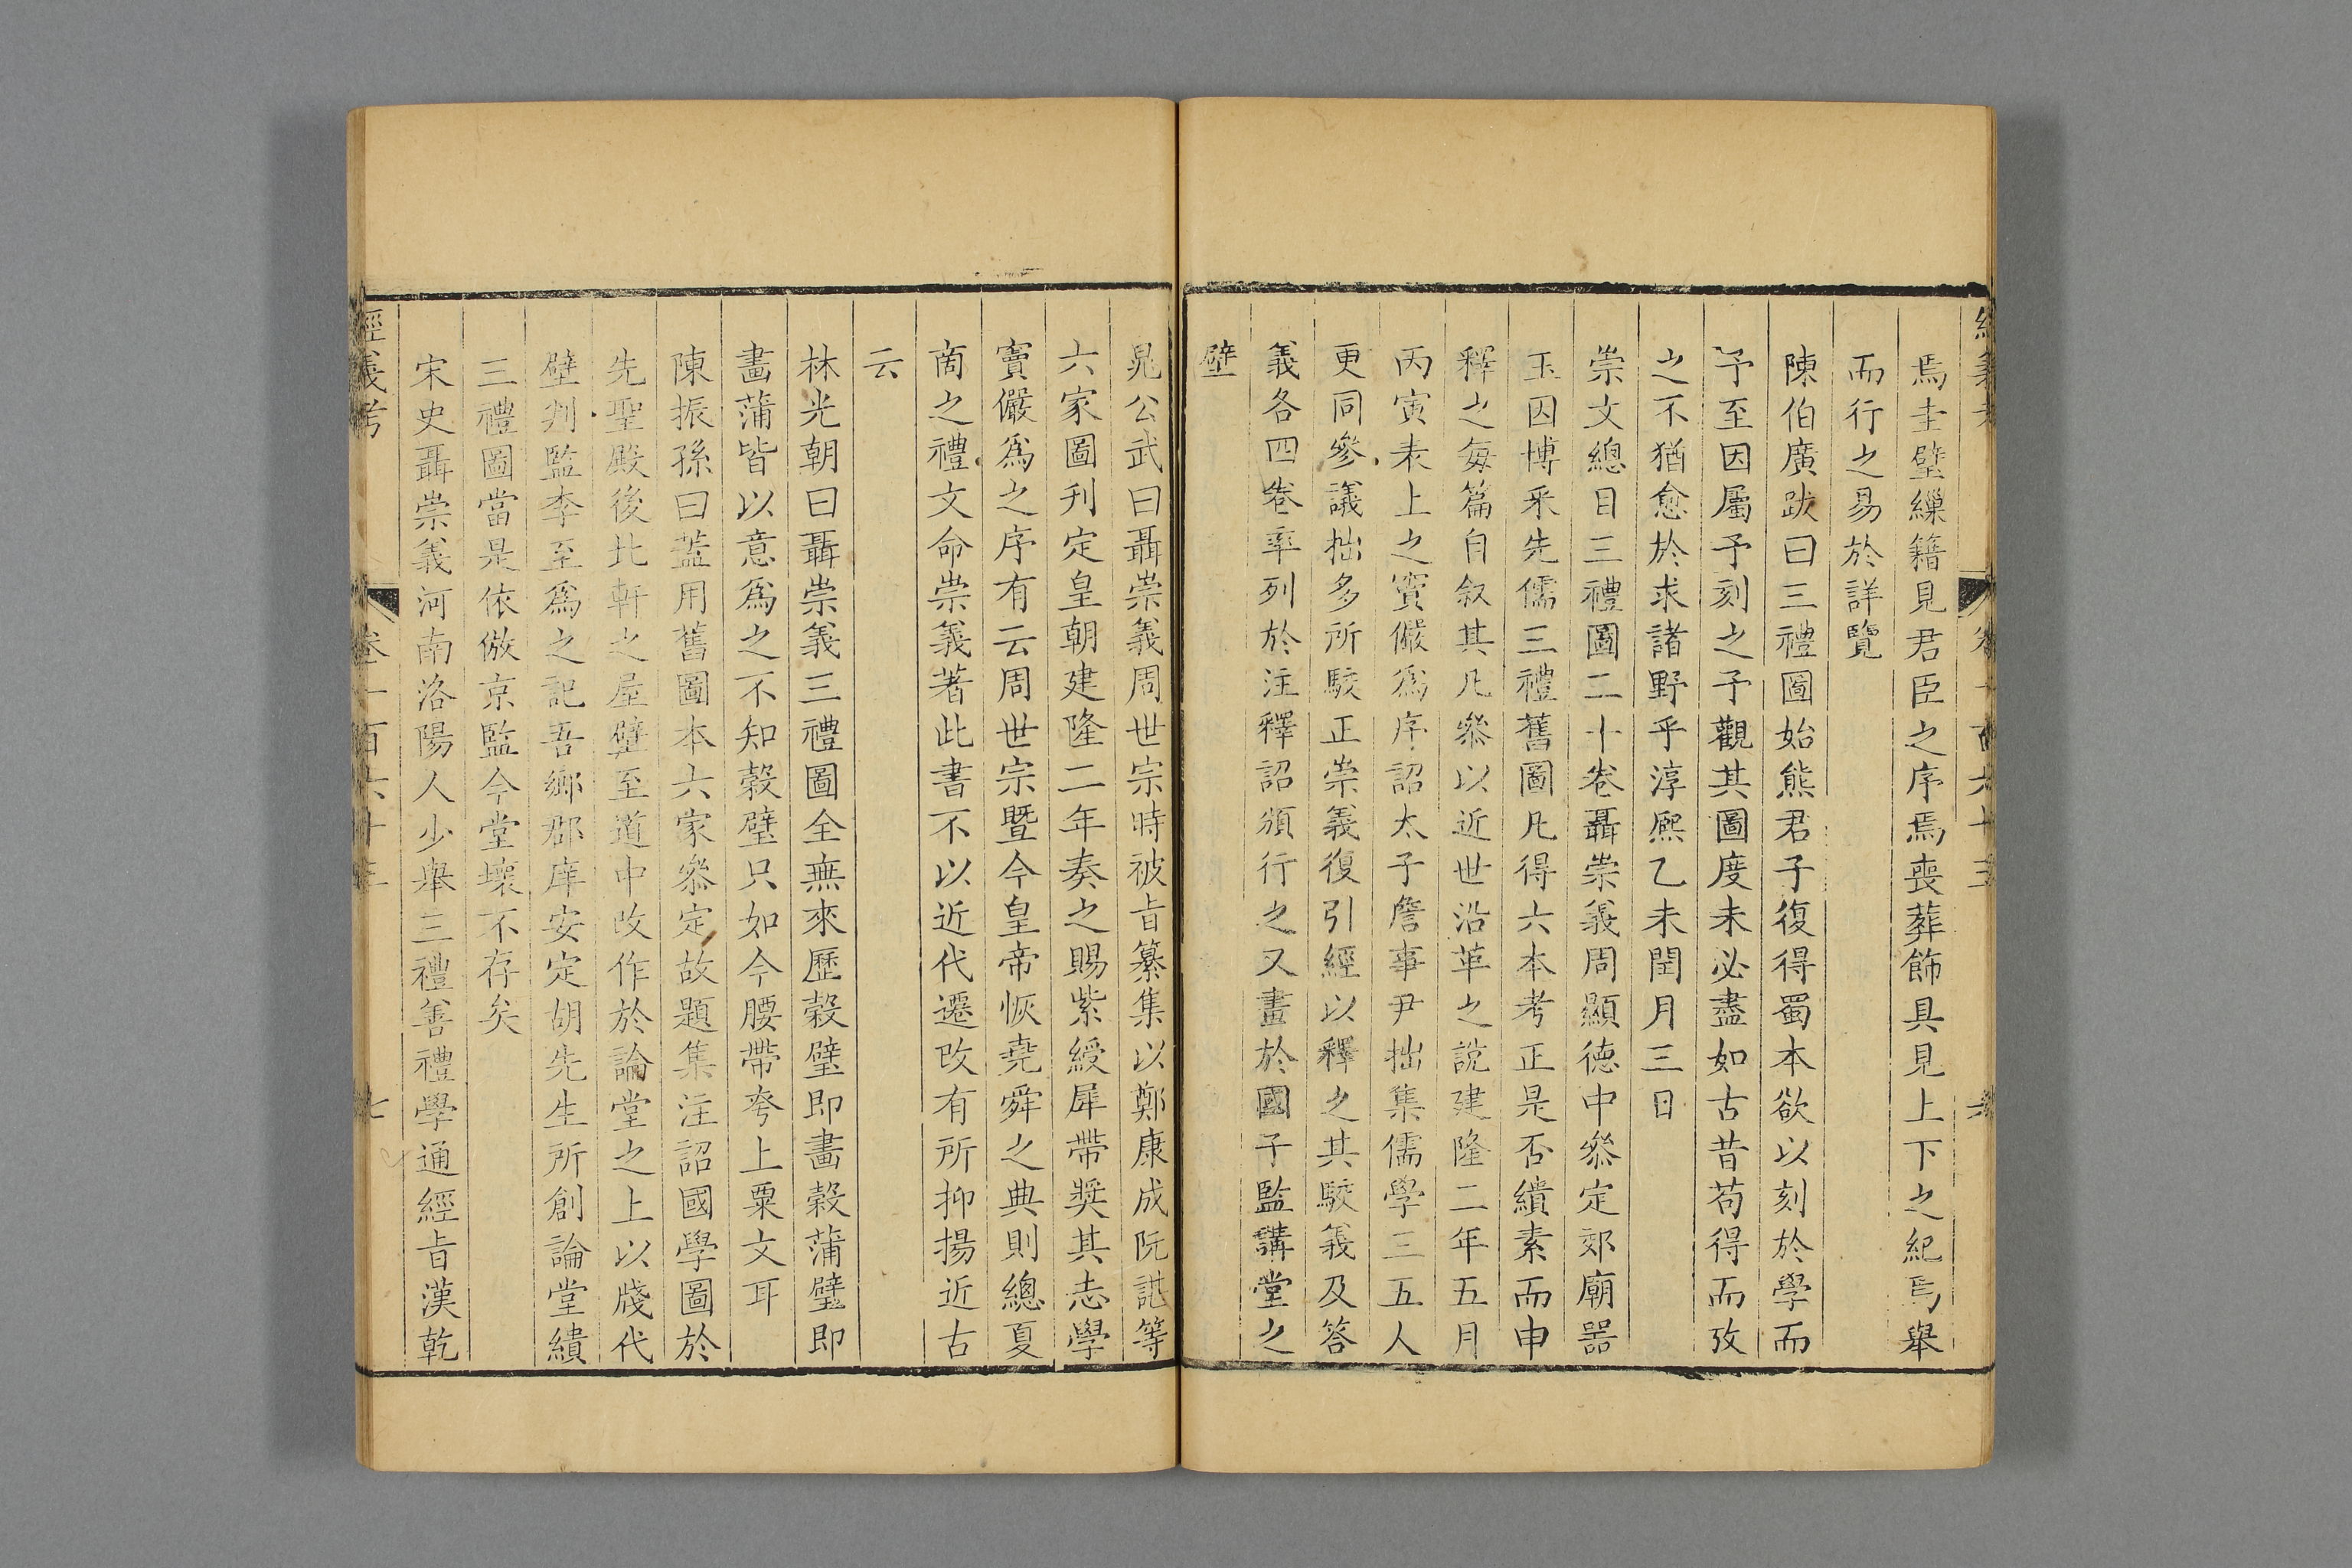 焉圭璧繅籍見君臣之序焉喪葬飾具見上下之紀焉舉
而行之易於詳覽
陳伯廣跋曰三禮圖始熊君子復得蜀本欲以刻於學而
予至因屬予刻之予觀其圖度未必盡如古昔苟得而攷
之不猶愈於求諸野乎淳熙乙未閏月三日
崇文總目三禮圖二十卷聶崇義周顯德中叅定郊廟器
玉因博采先儒三禮舊圖凡得六本考正是否繢素而申
釋之每篇自叙其凡叅以近世沿革之說建隆二年五月
丙寅表上之竇儼爲序詔太子詹事尹拙集儒學三五人
更同參議拙多所駮正崇義復引經以釋之其駮義及答
義各四卷率列於注釋詔頒行之又畫於國子監講堂之
壁
晁公武曰聶崇義周世宗時被旨纂集以鄭康成阮諶等
六家圖刊定皇朝建隆二年奏之賜紫綬犀帶奬其志學
竇儼爲之序有云周世宗暨今皇帝恢堯舜之典則總夏
商之禮文命崇義著此書不以近代遷改有所抑揚近古
云
林光朝曰聶崇義三禮圖全無來歷榖璧即畫榖蒲璧即
畫蒲皆以意爲之不知榖璧只如今腰帶夸上粟文耳
陳振孫曰蓋用舊圖本六家叅定故題集注詔國學圖於
先聖殿後北軒之屋壁至道中改作於論堂之上以牋代
壁判監李至爲之記吾鄉郡庠安定胡先生所創論堂繢
三禮圖當是依倣京監今堂壞不存矣
宋史聶崇義河南洛陽人少舉三禮善禮學通經旨漢乾
經義考
卷一百六十三
七